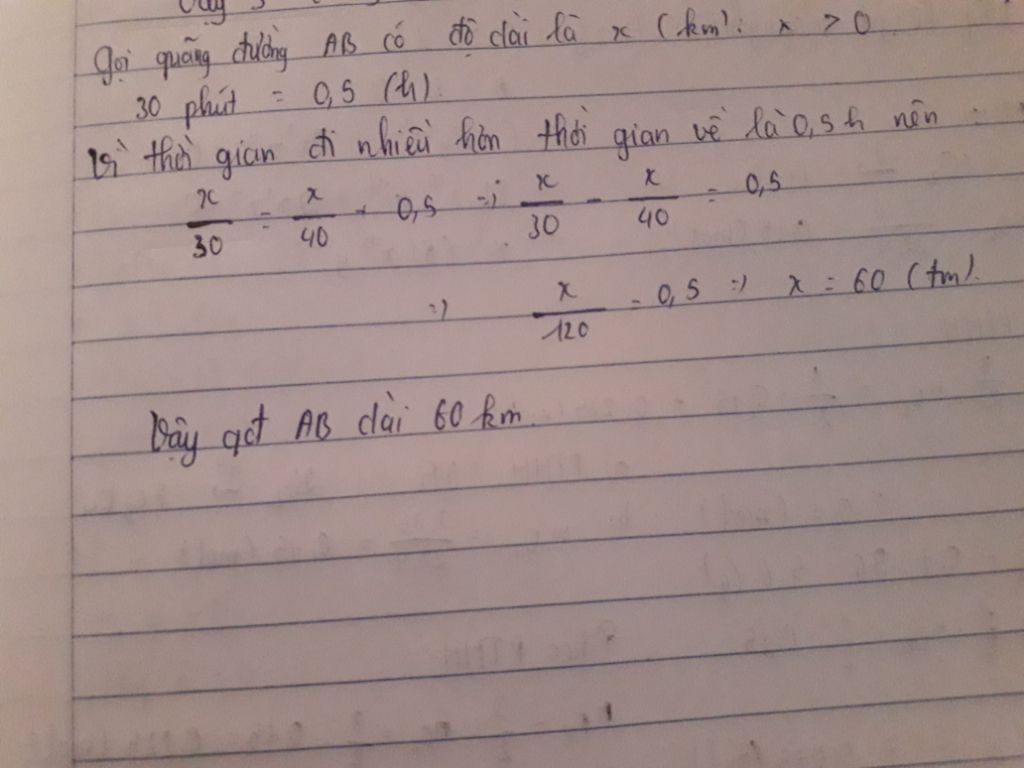 Gọi quãng đường AB có độ dài là x (km). x > 0
30 phút = 0,5 (h).
Vì thời gian đi nhiều hơn thời gian về là 0,5h nên :
x/30 = x/40 + 0,5 => x/30 - x/40 = 0,5
=> x/120 = 0,5 => x = 60 (tm).
Vậy qđ AB dài 60 km.